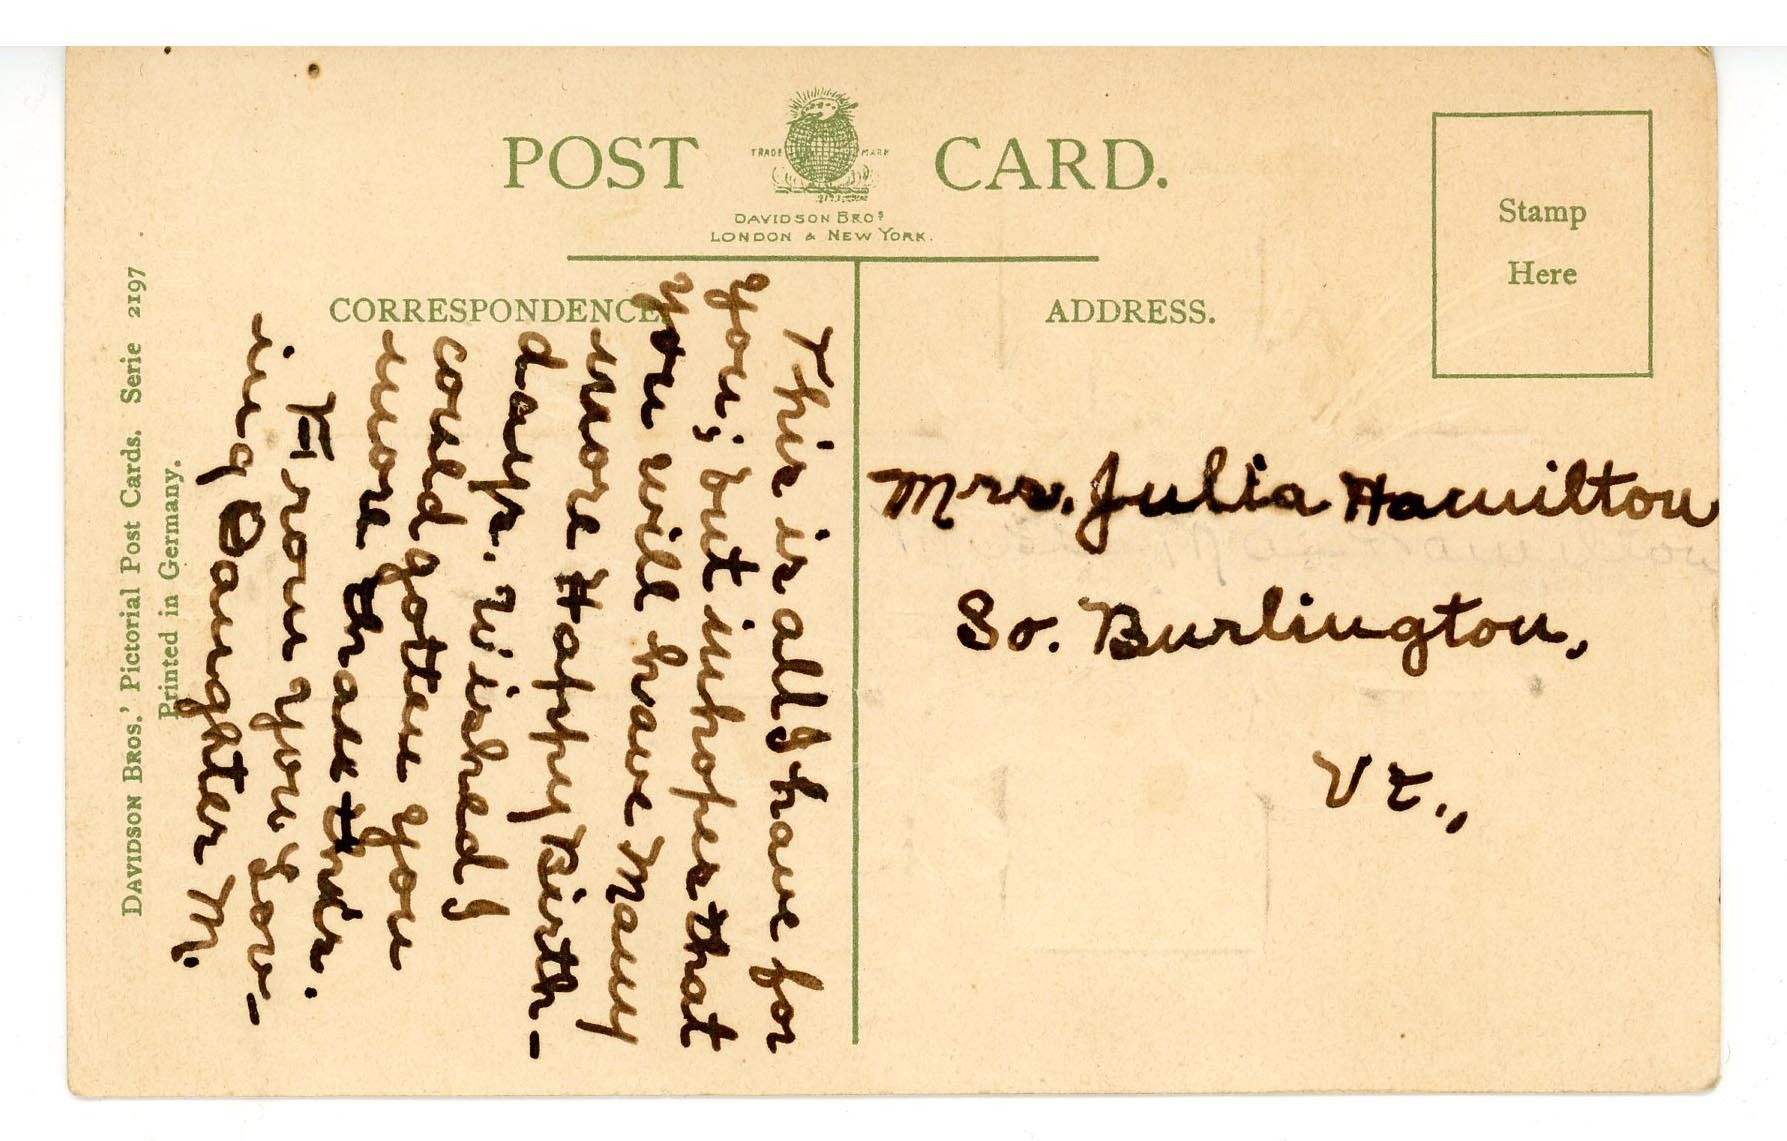 POST CARD.
TRADE MARK
DAVIDSON BROS
LONDON & NEW YORK.
Stamp
Here
CORRESPONDENCE
ADDRESS.
This is all I have for
you; but in hopes that
you will have Many
more Happy Birth-
days. Wished I
could gotten you
more than this.
From your Lov-
ing Daughter M.
Mrs. Julia Hamilton
So. Burlington,
Vt.,
DAVIDSON BROS.' Pictorial Post Cards. Serie 2197
Printed in Germany.